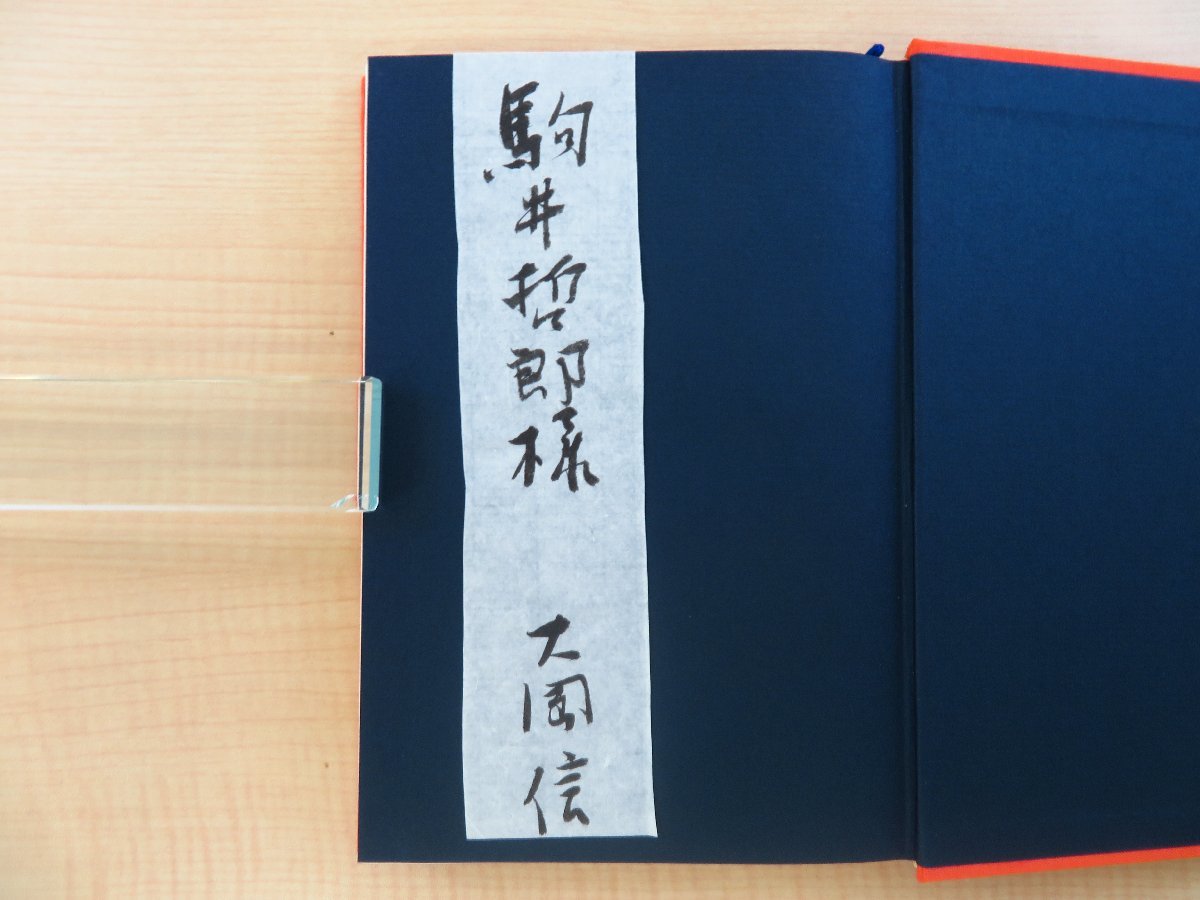 駒井哲郎様 大岡信